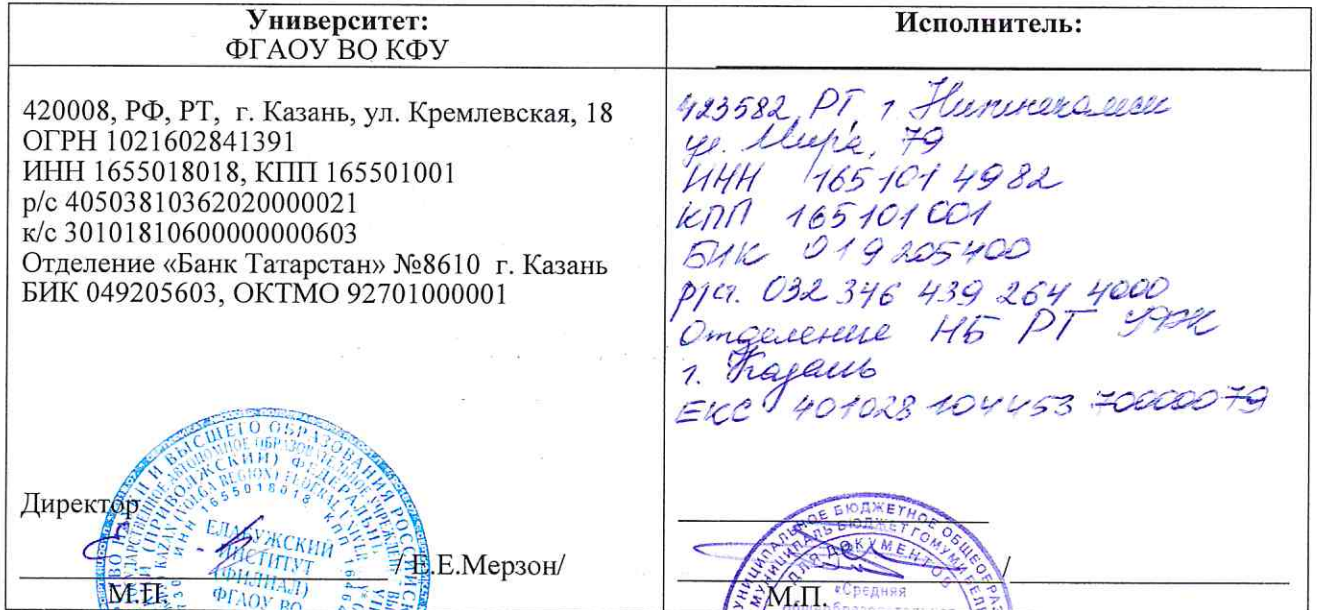 Университет:
ФГАОУ ВО КФУ
420008, РФ, РТ, г. Казань, ул. Кремлевская, 18
ОГРН 1021602841391
ИНН 1655018018, КПП 165501001
р/с 40503810362020000021
к/с 30101810600000000603
Отделение «Банк Татарстан» №8610 г. Казань
БИК 049205603, ОКТМО 92701000001
Директор
/ Е.Е.Мерзон/
М.П.
ЕЛАБУЖСКИЙ
ИНСТИТУТ
(ФИЛИАЛ)
ФГАОУ ВО
Исполнитель:
423582 РТ г Нижнекамск
ул. Мира, 79
ИНН 165 101 4982
КПП 165101001
БИК 019205400
р/сч. 032 346 439 264 4000
Отделение НБ РТ УФК
г. Казань
ЕКС 401028 104453 70000079
МУНИЦИПАЛЬНОЕ БЮДЖЕТНОЕ ОБЩЕОБРАЗ
ДЛЯ ДОКУМЕНТОВ
/
М.П.
«Средняя